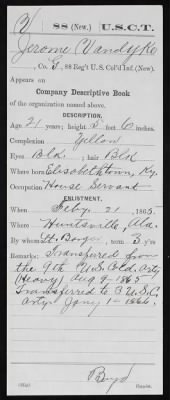 V 88 (New.) U.S.C.T.
Jerome Vandyke
, Co. G, 88 Reg't U.S. Col'd Inf. (New).
Appears on
Company Descriptive Book
of the organization named above.
DESCRIPTION.
Age 21 years; height 5 feet 6 inches.
Complexion Yellow
Eyes Blk; hair Blk
Where born Elisabethtown, Ky.
Occupation House Servant
ENLISTMENT.
When Feby. 21, 1865.
Where Huntsville, Ala.
By whom Lt. term 3 y'rs.
Remarks: Transferred from
the 9th U.S. Cld. Arty
(Heavy) Aug 9 1865
Transferred to 3 U.S.C.
Arty. Jany 1 - 1866.
Boyd
Copyist.